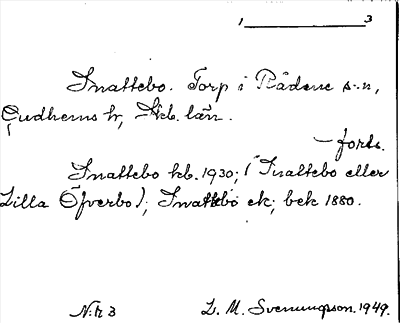 1 3
Snattebo. Torp i Rådene s:n,
Gudhems hd, Skb. län.
– forts.
Snattebo kb. 1930; (Snaltebo eller
Lilla Öfverbo); Snattebo ek; bek 1880.
N:r 3 L. M. Svenungsson. 1949.